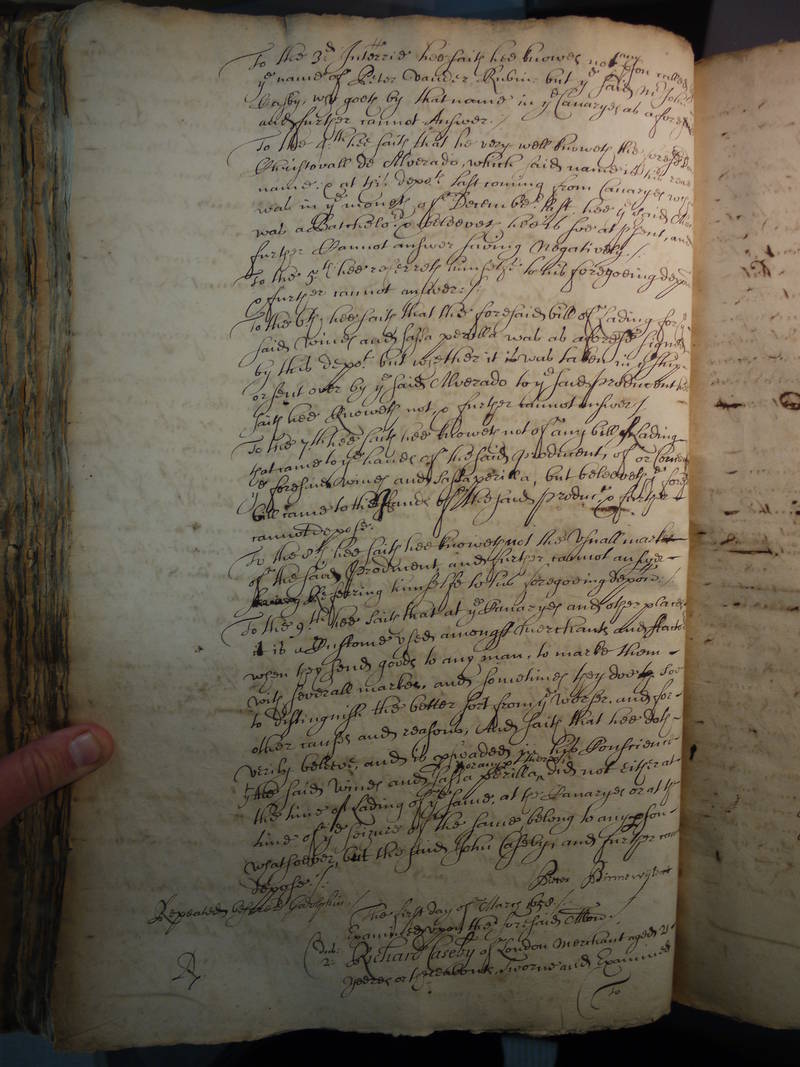 To the 3d Interrie hee saith hee knowes not any pson called
ye name of Peter Vander Rubin but ye said Mr John
Casby, who goeth by that name in ye Canaryes as aforesd
and further cannot Answer./
To the 4th hee saith that he very well knoweth the
Christovall de Alverado, which said name is his
name, & at this depots last coming from Canaryes
was in ye moneth of December last hee ye said
was a Batchelor & beleeveth hee is soe at psent, and
further Cannot answer saving Negatively./
To the 5th hee referreth himselfe to his foregoeing depon
& further cannot answer./
To the 6th hee saith that the foresaid bill of Lading for ye
said wines and sassa perilla was as aforesd signed
by this depot but whether it was taken in ye shipp
or sent over by ye said Alverado to ye said Producent hee
saith hee knoweth not, & further cannot answer./
To the 7th hee saith hee knowes not of any bill of Lading
that came to ye hands of the said Producent, of or
ye foresaid wines and Sassaperilla, but beleeveth ye
bill came to the hands of the said Producent & further
cannot depose.
To the 8th hee saith hee knoweth not the Usuall marke
of the said Producent, and further cannot answer
Referring himselfe to his foregoeing depon./
To the 9th hee saith that at ye Canaryes and other places
it is a Custome used amongst Merchants and ffactors
when they send goods to any man, to marke them
with severall markes, and sometimes they doe it soe
to distinguish the better sort from ye worser, and for
other causes and reasons, And saith that hee doth
verily beleeve, and is pswaded in his Conscience
the said wines and Sassa perilla, nor any pt thereof did not either at
the time of Lading of ye same, at the Canaryes or at the
time of ye seizure of the same belong to any pson
whatsoever, but the said John Casby, and further can
depose./
Repeated before Godolphin./
The first day of March 1658./
Examined upon the foresaid Allon./
Richard Caseby of London Merchant aged 21
yeeres or thereabouts, sworne and Examined
To